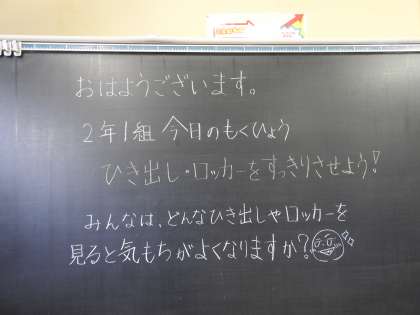 おはようございます。
2年1組 今月のもくひょう
ひき出し・ロッカーをすっきりさせよう!
みんなは、どんなひき出しやロッカーを
見ると気もちがよくなりますか?